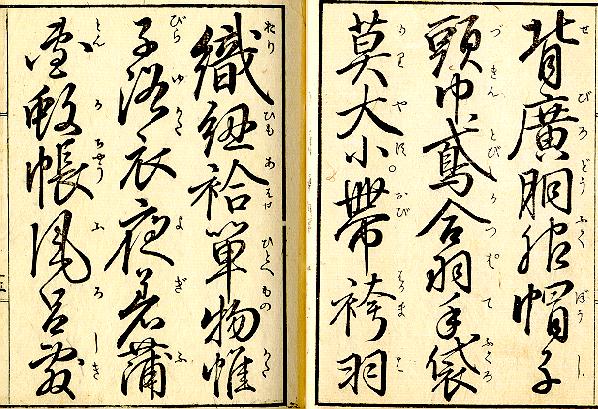 背廣胴服帽子
せびろどうふくぼうし
頭巾鳶合羽手袋
づきんとびがつてぶくろ
莫大小。帶袴羽
めりやすおびはかまは
織紐袷單物帷
おりひもあはせひとへものかた
子浴衣夜着蒲
びらゆかたよぎふ
團蚊帳風呂敷
とんかちやうふろしき